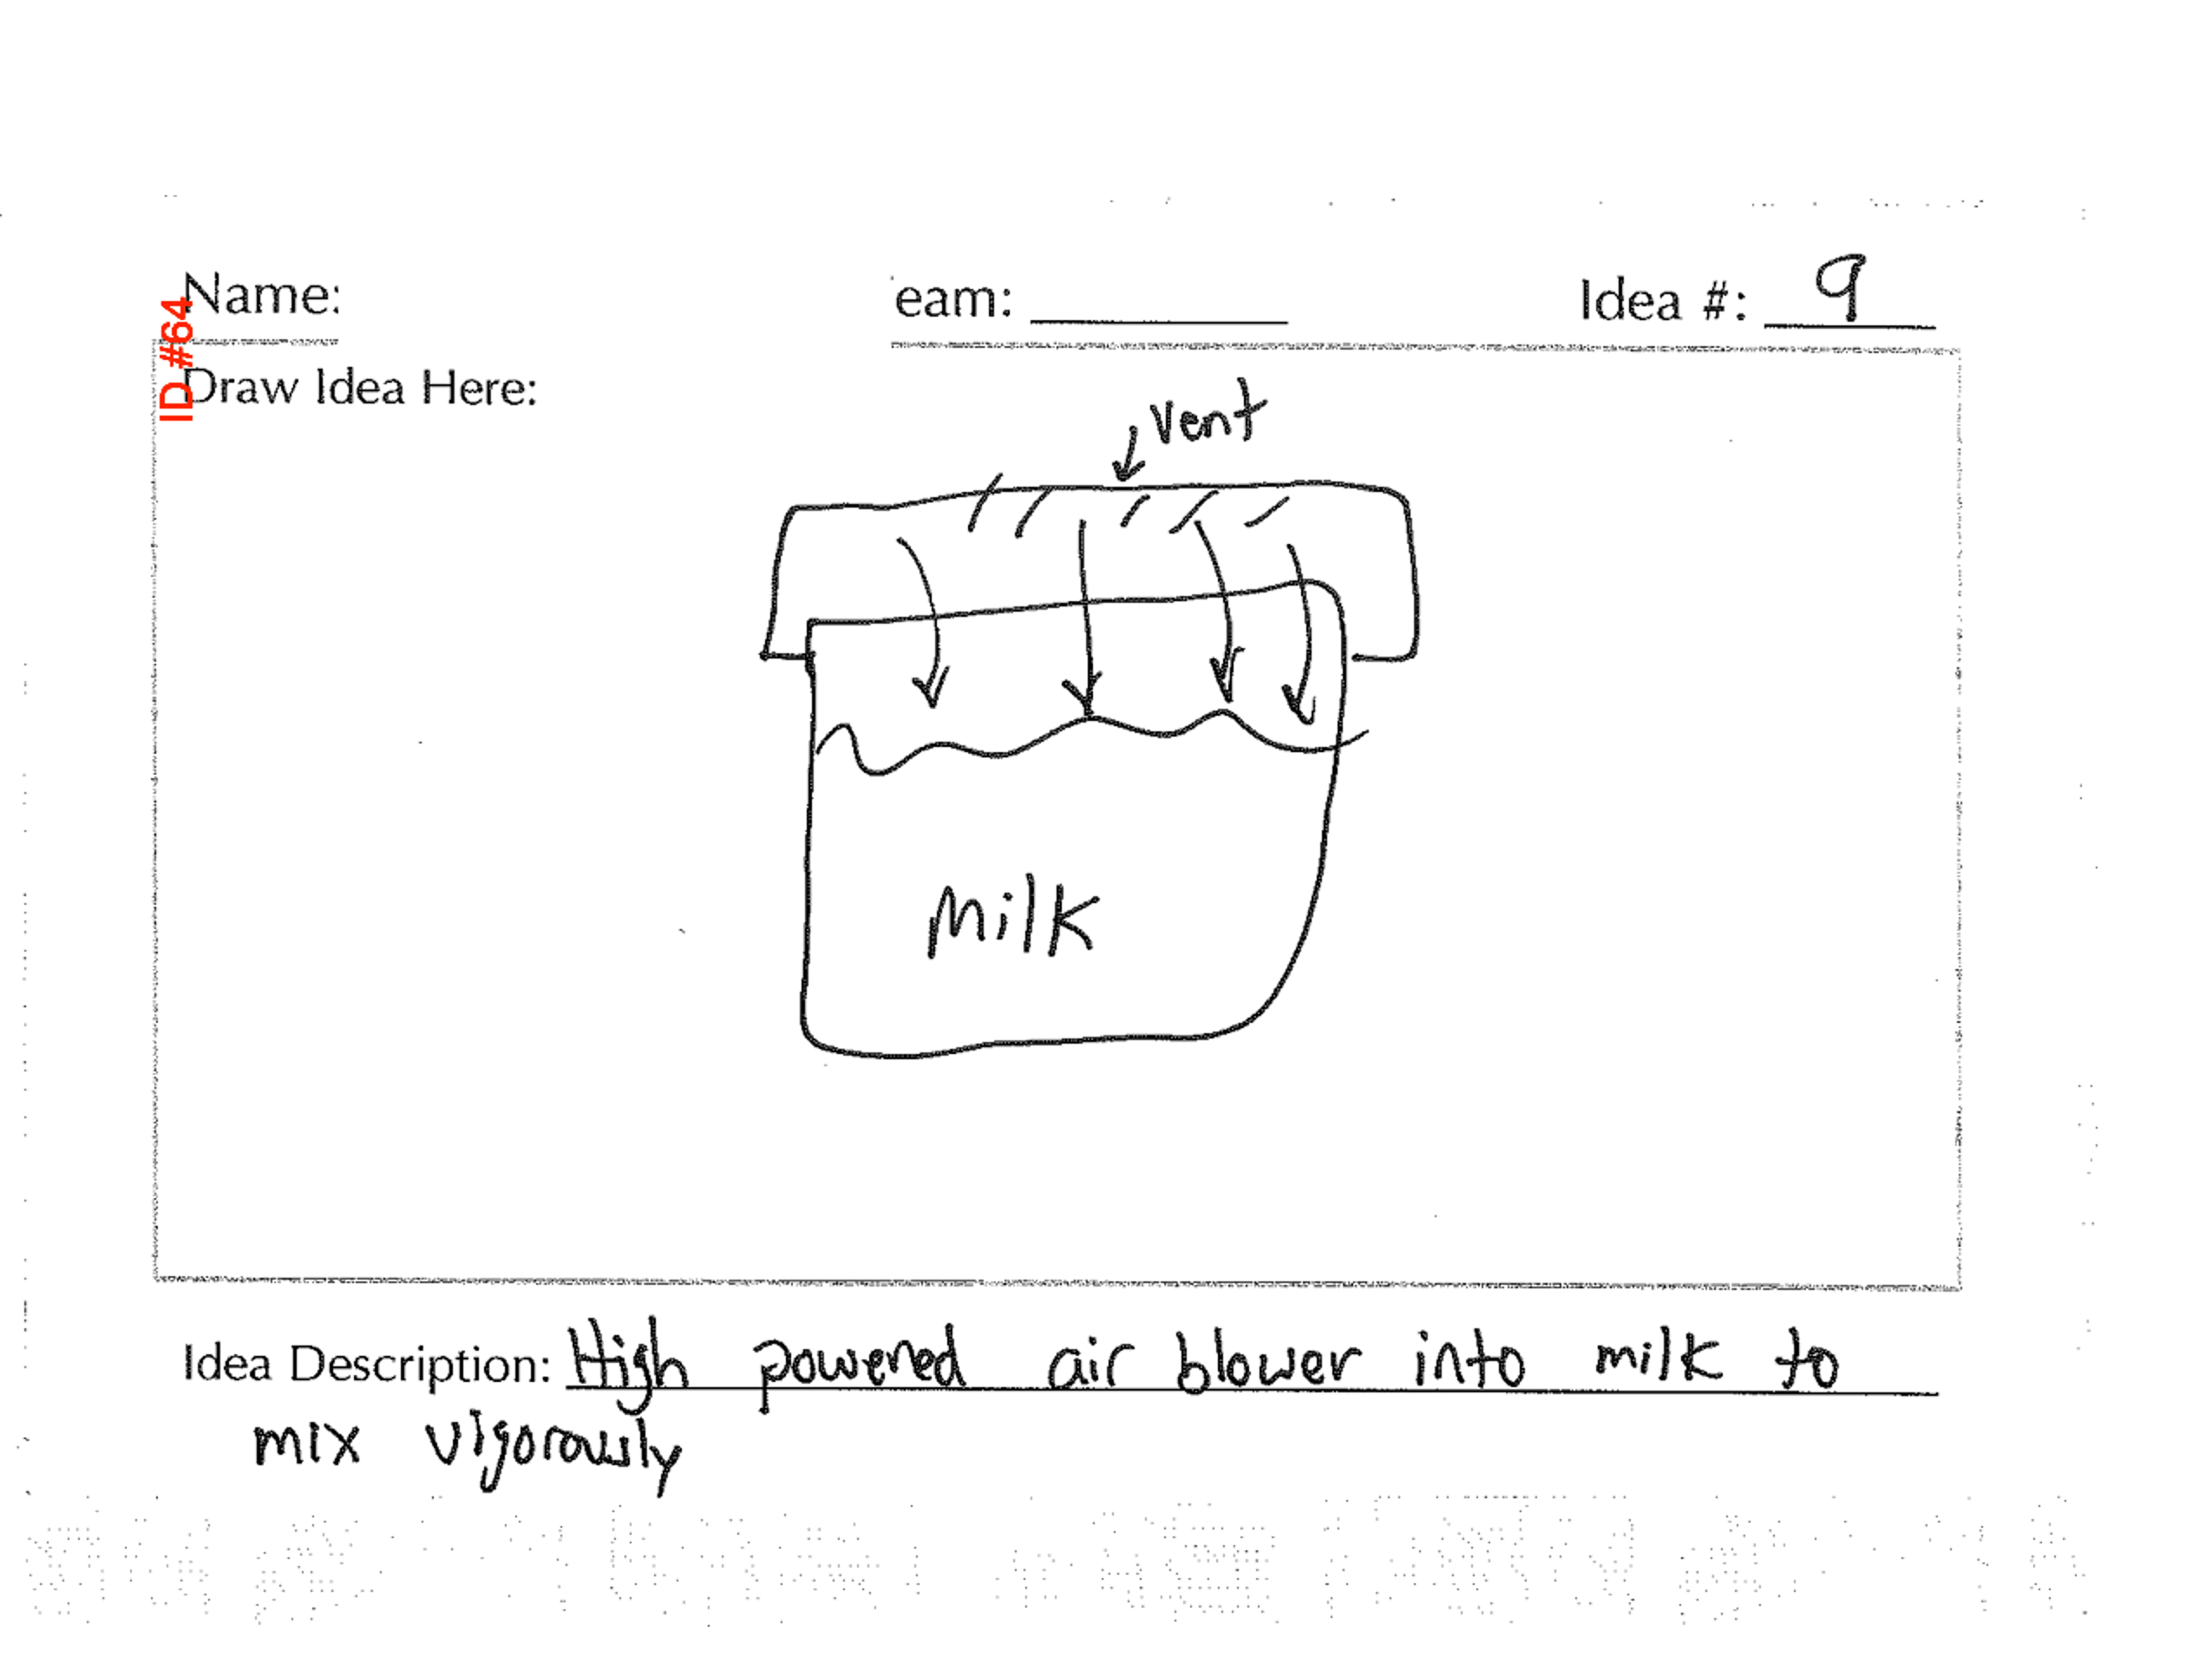 Name:
eam:
Idea #: 9
ID #64
Draw Idea Here:
vent
Milk
Idea Description: High powered air blower into milk to
mix vigorously